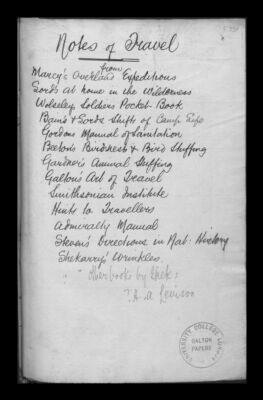 Notes of Travel
from
Marcy's Overland Expeditions
Lord's at home in the Wilderness
Wolseley Soldiers Pocket-Book
Bain's & Lords Shifts of Camp Life
Gordons Manual of Sanitation
Beeton's Birdnests & Bird Stuffing
Gardner's Animal Stuffing
Galton's Art of Travel
Smithsonian Institute
Hints to Travellers
Admiralty Manual
Steven's Directions in Nat: History
Shekarry's Wrinkles
" " Other books by
? H A Levison
UNIVERSITY COLLEGE LONDON
GALTON
PAPERS